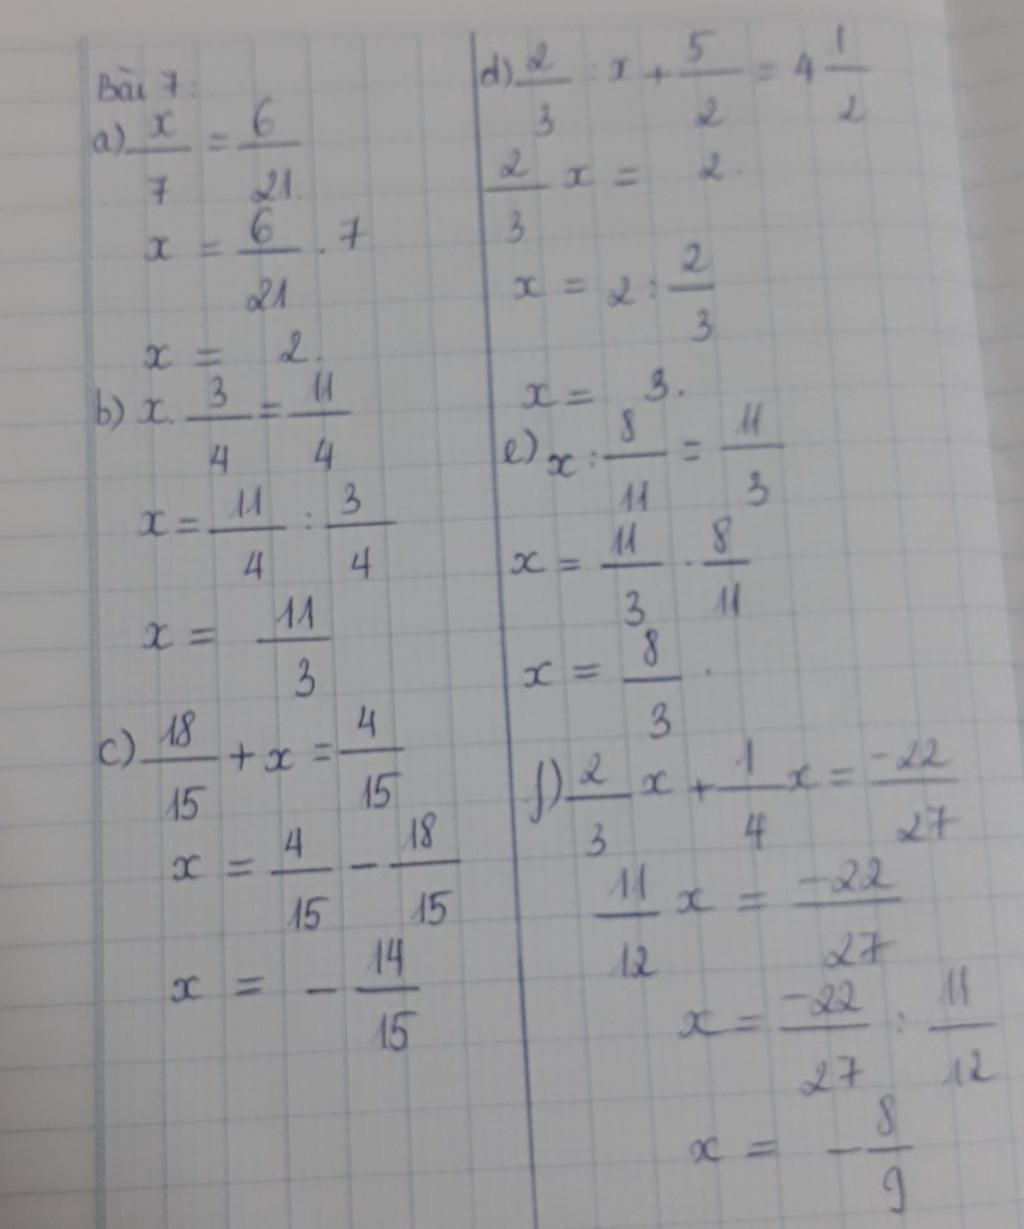 Bài 7:
a) x/7 = 6/21
x = 6/21 . 7
x = 2.
b) x . 3/4 = 11/4
x = 11/4 : 3/4
x = 11/3
c) 18/15 + x = 4/15
x = 4/15 - 18/15
x = - 14/15
d) 2/3 : x + 5/2 = 4 1/2
2/3 x = 2.
x = 2 : 2/3
x = 3.
e) x : 8/11 = 11/3
x = 11/3 . 8/11
x = 8/3 .
f) 2/3 x + 1/4 x = -22/27
11/12 x = -22/27
x = -22/27 : 11/12
x = - 8/9